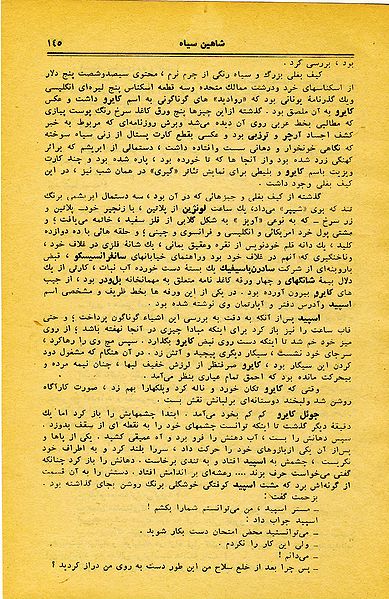 شاهین سیاه
۱۴۵
بود ، بررسی کرد .
کیف بغلی بزرگ و سیاه رنگی از چرم نرم ، محتوی سیصد و شصت پنج دلار
از اسکناسهای خرد و درشت ممالک متحده وسه قطعه اسکناس پنج لیره‌ای انگلیسی
ویك گذرنامهٔ یونانی بود که «روادید» های گوناگونی به اسم کایرو داشت و عکس
کایرو به آن ملصق بود . گذشته ازاین چیزها پنج ورق کاغذ سرخ رنگ پوست پیازی
که مطالبی بخط عربی روی آن دیده می‌شد وبرش روزنامه‌ای که مربوط به خبر
کشف اجساد آرچر و ترزبی بود و عکسی بقطع کارت پستال از زنی سیاه سوخته
که نگاهی خونخوار و دهانی سست وافتاده داشت ، دستمالی از ابریشم که براثر
کهنگی زرد شده بود واز آنجا ها که تا خورده بود ، پاره شده بود و چند کارت
ویزیت باسم کایرو و بلیطی برای نمایش تئاتر «گیری» در همان شب نیز ، در این
کیف بغلی وجود داشت .
گذشته از کیف بغلی و چیزهائی که در آن بود ، سه دستمال ابریشمی برنگ
تند که بوی «شیپر» می‌داد، یك ساعت لونژین از پلاتین ، با زنجیر خوش پلاتین و
زر سرخ ـ که به نوعی «آویز» به شکل گلابی از فلز سفید ، خاتمه می‌یافت ؛ و
مشتی پول خرد امریکائی و انگلیسی و فرانسوی و چینی ؛ و حلقه هائی با ده دوازده
کلید ، یك دانه قلم خودنویس از نقره وعقیق یمانی ، یك شانهٔ فلزی در غلاف خود ،
وناخنگیری که آنهم در غلاف خود بود وراهنمای خیابانهای سانفرانسیسکو ، قبض
باروبنه‌ای از شرکت سادرن‌پاسیفیك یك بستهٔ دست خورده آب نبات ، کارتی از یك
دلال بیمهٔ شانگهای و چهار ورقه کاغذ نامه متعلق به مهمانخانه بل‌ودر بود ، از جیب
های کایرو بیرون آورده بود . در یکی از این ورقه ها بخط ظریف و مشخصی اسم
اسپید وآدرس دفتر و آپارتمان وی نوشته شده بود .
اسپید پس از آنکه به دقت به بررسی این اشیاء گوناگون پرداخت ؛ و حتی
قاب ساعت را نیز باز کرد برای اینکه مبادا چیزی در آنجا نهفته باشد ؛ از روی
میز خود خم شد تا اینکه دست روی نبض کایرو بگذارد . سپس مچ وی را رهاکرد ،
سرجای خود نشست ، سیگار دیگری پیچید و آتش زد . در آن هنگام که مشغول دود
کردن این سیگار بود ، کایرو صرفنظر از لرزش خفیف لبها ، چنان نیمه مرده و
بیحرکت مانده بود که احمق تمام عیاری بنظر می‌آمد .
وقتی که کایرو تکان خورد و ناله کرد وپلکهارا بهم زد ، صورت کارآگاه
روشن شد ولبخند دوستانه‌ای برلبانش نقش بست .
جوئل کایرو کم کم بخود می‌آمد . ابتدا چشمهایش را باز کرد اما یك
دقیقهٔ دیگر گذشت تا اینکه توانست چشمهای خود را به نقطه ای از سقف بدوزد .
سپس دهانش را بست ، آب دهنش را فرو برد و آه عمیقی کشید . یکی از پاها و
پس‌از آن یکی ازبازوهای خود را حرکت داد ، سررا بلند کرد و به اطراف خود
نگریست ، چشمش به اسپید افتاد و به تندی برخاست . دهانش را باز کرد چنانکه
گفتی می‌خواست حرف بزند ... رعشه‌ای بر اندامش افتاد . دستش را به آن قسمت
از گونه‌اش برد که مشت اسپید کوفتگی خوشگلی برنگ روشن بجای گذاشته بود .
بزحمت گفت :
ـ مستر اسپید ، من می‌توانستم شمارا بکشم !
اسپید جواب داد :
ـ می‌توانستید محض امتحان دست بکار شوید .
ـ ولی این کار را نکردم .
ـ می‌دانم !
ـ پس چرا بعد از خلع سلاح من این طور دست به روی من دراز کردید ؟